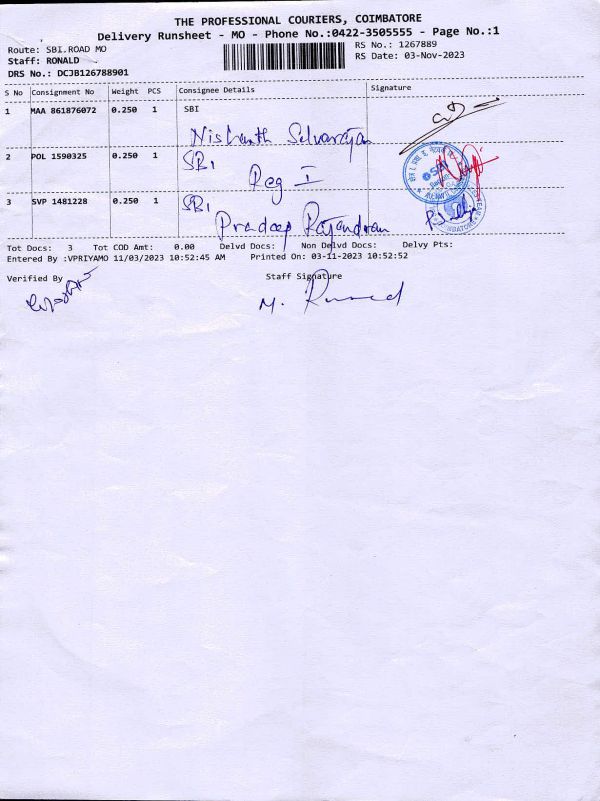 THE PROFESSIONAL COURIERS, COIMBATORE
Delivery Runsheet - MO - Phone No.:0422-3505555 - Page No.:1
Route: SBI.ROAD MO
RS No.: 1267889
Staff: RONALD
RS Date: 03-Nov-2023
DRS No.: DCJB126788901
S No Consignment No Weight PCS Consignee Details Signature
1 MAA 861876072 0.250 1 SBI
Nishanth Selvarajan
2 POL 1590325 0.250 1 SBI
Reg I
SBI
3 SVP 1481228 0.250 1 SBI
Pradeep Rajendran
Tot Docs: 3 Tot COD Amt: 0.00 Delvd Docs: Non Delvd Docs: Delvy Pts:
Entered By :VPRIYAMO 11/03/2023 10:52:45 AM Printed On: 03-11-2023 10:52:52
Verified By Staff Signature